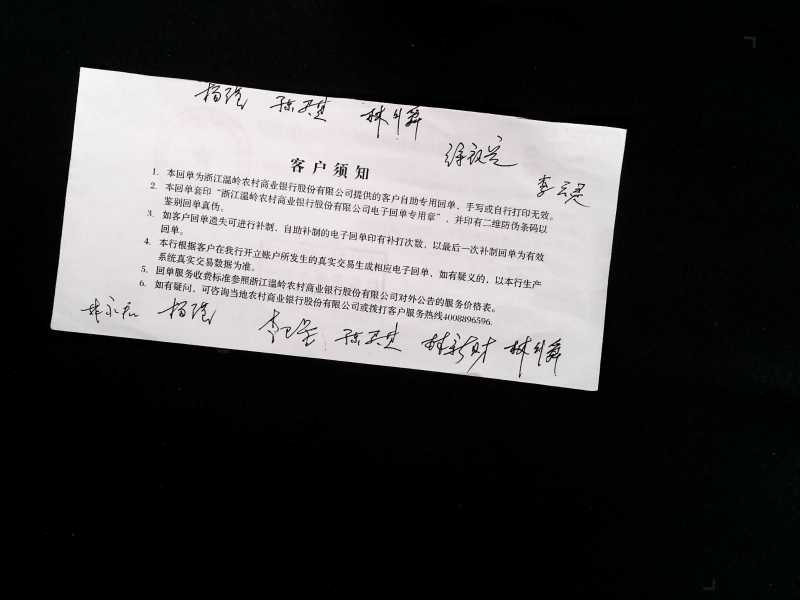 客户须知
1. 本回单为浙江温岭农村商业银行股份有限公司提供的客户自助专用回单，手写或自行打印无效。
2. 本回单套印“浙江温岭农村商业银行股份有限公司电子回单专用章”，并印有二维防伪条码以
鉴别回单真伪。
3. 如客户回单遗失可进行补制，自助补制的电子回单印有补打次数，以最后一次补制回单为有效
回单。
4. 本行根据客户在我行开立账户所发生的真实交易生成相应电子回单，如有疑义的，以本行生产
系统真实交易数据为准。
5. 回单服务收费标准参照浙江温岭农村商业银行股份有限公司对外公告的服务价格表。
6. 如有疑问，可咨询当地农村商业银行股份有限公司或拨打客户服务热线4008896596.